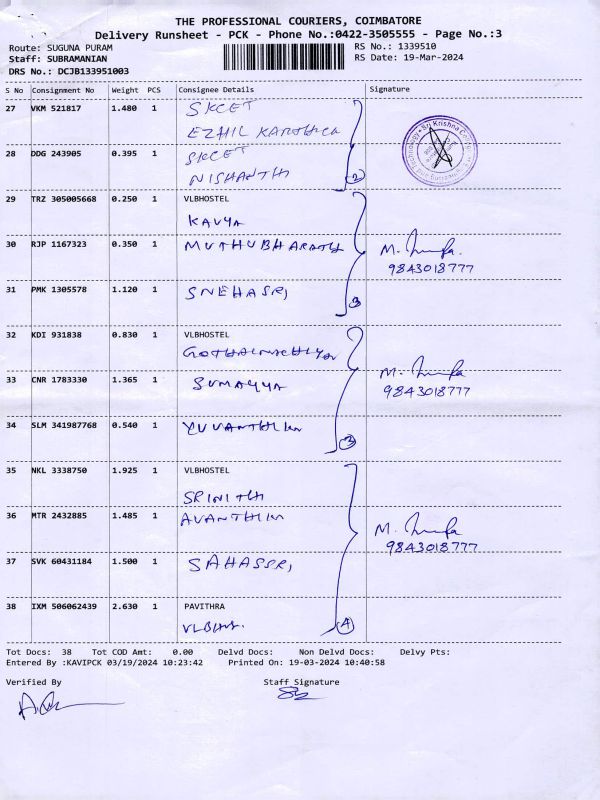 THE PROFESSIONAL COURIERS, COIMBATORE
Delivery Runsheet - PCK - Phone No.:0422-3505555 - Page No.:3
Route: SUGUNA PURAM RS No.: 1339510
Staff: SUBRAMANIAN RS Date: 19-Mar-2024
DRS No.: DCJB133951003
S No Consignment No Weight PCS Consignee Details Signature
27 VKM 521817 1.480 1 SKCET
EZHIL KARTHICA
28 DDG 243905 0.395 1 SKCET
NISHANTH
2
29 TRZ 305005668 0.250 1 VLBHOSTEL
KAVYA
30 RJP 1167323 0.350 1 MUTHUBHARATH M.
9843018777
31 PMK 1305578 1.120 1 SNEHASRI
3
32 KDI 931838 0.830 1 VLBHOSTEL
M.
33 CNR 1783330 1.365 1 SUMAYYA 9843018777
34 SLM 341987768 0.540 1
3
35 NKL 3338750 1.925 1 VLBHOSTEL
SRINITHI
36 MTR 2432885 1.485 1 AVANTHIKA M.
9843018777
37 SVK 60431184 1.500 1 SAHASSRI
38 IXM 506062439 2.630 1 PAVITHRA
VLBHS. 4
Tot Docs: 38 Tot COD Amt: 0.00 Delvd Docs: Non Delvd Docs: Delvy Pts:
Entered By :KAVIPCK 03/19/2024 10:23:42 Printed On: 19-03-2024 10:40:58
Verified By Staff Signature